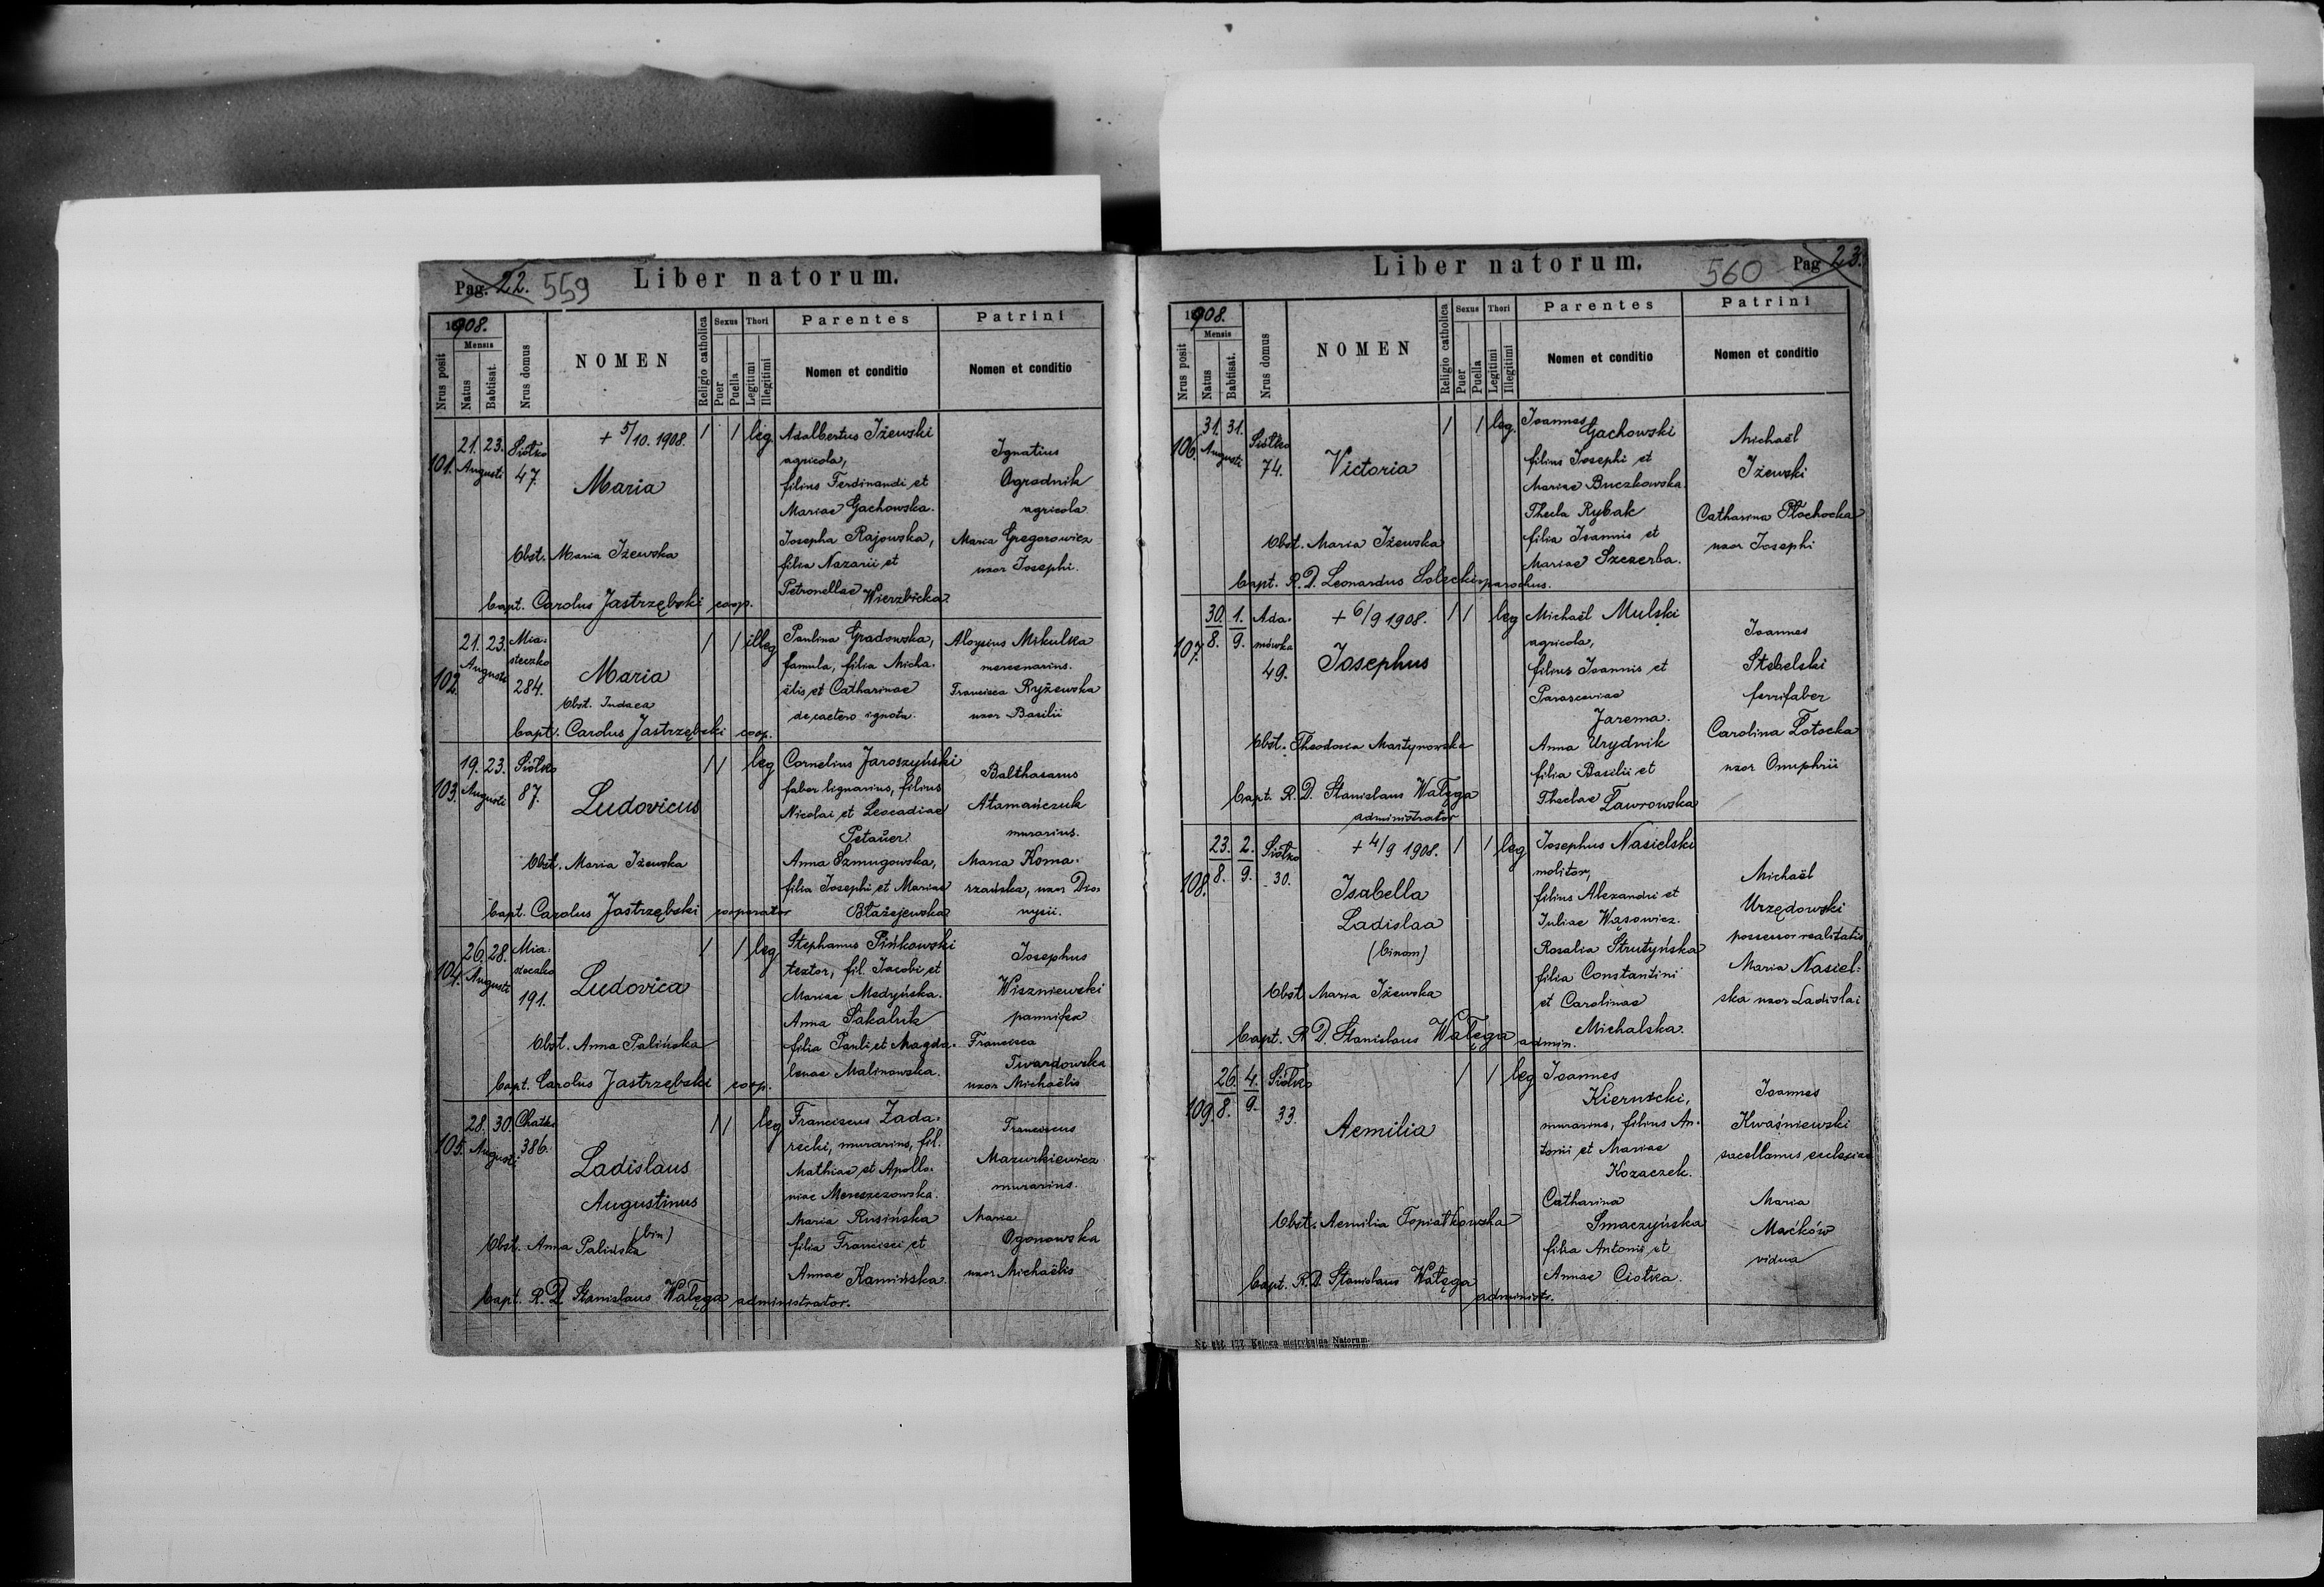 Pag. 22. 559 Liber natorum.
1908.
Mensis
Nrus posit
Natus
Babtisat.
Nrus domus
NOMEN
Religio catholica
Sexus
Puer
Puella
Thori
Legitimi
Illegitimi
Parentes
Nomen et conditio
Patrini
Nomen et conditio
101.
21. 23.
Augusti
Siółko
47.
+ 5/10. 1908.
Maria
1 1 leg.
Adalbertus Iżewski
agricola,
filius Ferdinandi et
Mariae Gachowska.
Josepha Rajowska,
filia Nazarii et
Petronellae Wierzbicka.
Ignatius
Ogrodnik
agricola
Maria Gregorowicz
uxor Josephi.
Obst. Maria Iżewska
bapt. Carolus Jastrzębski coop.
102.
21. 23.
Augusti
Mia-
steczko
284.
Maria
Obst. Judaea
1 1 illeg
Paulina Gradowska,
famula, filia Micha-
ëlis et Catharinae
de caetero ignota.
Aloysius Mikulka
mercenarius.
Francisca Ryżewska
uxor Basilii
bapt. Carolus Jastrzębski coop.
103.
19. 23.
Augusti
Siółko
87.
Ludovicus
1 1 leg
Cornelius Jaroszyński
faber lignarius, filius
Nicolai et Leocadiae
Petauer.
Anna Szmugowska,
filia Josephi et Mariae
Błażejewska
Balthasarus
Atamańczuk
murarius.
Maria Koma-
rzańska, uxor Dio-
nysii.
Obst. Maria Iżewska
bapt. Carolus Jastrzębski cooperator
104.
26. 28.
Augusti
Mia-
steczko
191.
Ludovica
1 1 leg
Stephanus Pińkowski
textor, fil. Jacobi et
Mariae Medyńska.
Anna Sakaluk
filia Pauli et Magda-
lenae Malinowska.
Josephus
Wiszniewski
pannifex
Francisca
Twardowska
uxor Michaëlis
Obst. Anna Palińska
bapt. Carolus Jastrzębski coop.
105.
28. 30.
Augusti
Chatki
386.
Ladislaus
Augustinus
(bin)
1 1 leg
Franciscus Zada-
recki, murarius, fil.
Mathiae et Apollo-
niae Mereszczowska.
Maria Rusińska
filia Francisci et
Annae Kamińska.
Franciscus
Mazurkiewicz
murarius.
Maria
Ogonowska
uxor Michaëlis
Obst. Anna Palińska
bapt. R. D. Stanislaus Wałęga administrator.
Liber natorum. 560 Pag 23.
1908.
Mensis
Nrus posit
Natus
Babtisat.
Nrus domus
NOMEN
Religio catholica
Sexus
Puer
Puella
Thori
Legitimi
Illegitimi
Parentes
Nomen et conditio
Patrini
Nomen et conditio
106.
31. 31.
Augusti
Siółko
74.
Victoria
1 1 leg.
Joannes
Gachowski
filius Josephi et
Mariae Buczkowska.
Thecla Rybak
filia Joannis et
Mariae Szczerba.
Michaël
Iżewski
Catharina Płochocka
uxor Josephi
Obst. Maria Iżewska
bapt. R. D. Leonardus Solecki parochus.
107.
30. 1.
8. 9.
Ada-
mówka
49.
+ 6/9 1908.
Josephus
1 1 leg
Michaël Mulski
agricola,
filius Joannis et
Parasceviae
Jarema.
Anna Urydnik
filia Basilii et
Theclae Ławrowska
Joannes
Stebelski
ferrifaber
Carolina Łotocka
uxor Onuphrii
Obst. Theodosia Martynowska
bapt. R. D. Stanislaus Wałęga
administrator
108.
23. 2.
8. 9.
Siółko
30.
+ 4/9 1908.
Isabella
Ladislaa
(binom)
1 1 leg
Josephus Nasielski
molitor,
filius Alexandri et
Juliae Wąsowicz.
Rosalia Strutyńska
filia Constantini
et Carolinae
Michalska.
Michaël
Urzędowski
possessor realitatis
Maria Nasiel-
ska uxor Ladislai
Obst Maria Iżewska
bapt. R. D. Stanislaus Wałęga admin.
109.
26. 4.
8. 9.
Siółko
33.
Aemilia
1 1 leg
Joannes
Kiernicki,
murarius, filius An-
tonii et Mariae
Kozaczek.
Catharina
Smaczyńska
filia Antonii et
Annae Ciotka.
Joannes
Kwaśniewski
sacellanus ecclesiae
Maria
Maćków
vidua
Obst. Aemilia Fopiatkowska
bapt. R. D. Stanislaus Wałęga
administr.
Księga metrykalna Natorum.